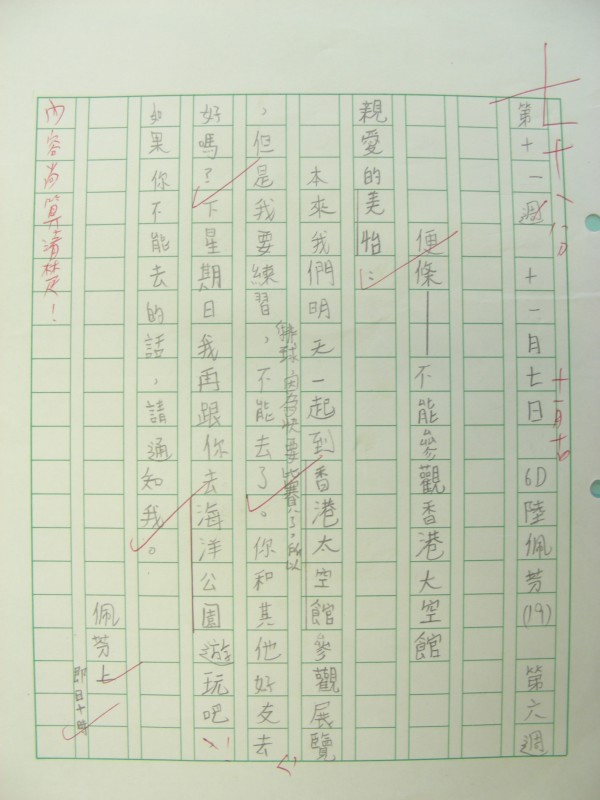 第十一週 十一月七日 6D陸佩芬(19) 第六週
便條——不能參觀香港太空館
親愛的美怡：
本來我們明天一起到香港太空館參觀展覽
，但是我要練習，不能去了。你和其他好友去
籃球因為快要比賽了。所以
好嗎？下星期日我再跟你去海洋公園遊玩吧！
如果你不能去的話，請通知我。
佩芬上
即日十時
內容尚算清楚！